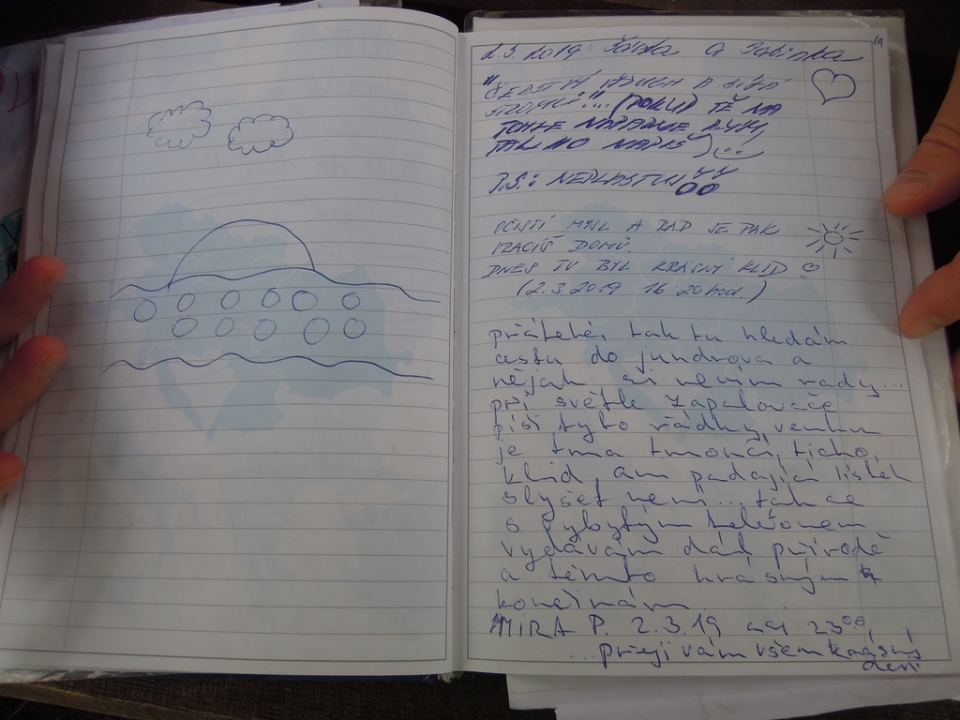 2.3.2019 Šárka a Sabinka
"ČERSTVÝ VZDUCH A
STROMŮ"... (POKUD TĚ NA
TOHLE NAPADNE RÝM,
TAK HO NAPIŠ)
P.S.: NEPLASTUJ!!
OČISTÍ MYSL A RÁD SE PAK
VRACÍŠ DOMŮ
DNES TU BYL KRÁSNÝ KLID
(2.3.2019 16:20 hod.)
přátelé, tak tu hledám
cestu do jundrova a
nějak si nevím rady...
při světle zapalovače
píši tyto řádky, venku
je tma tmoucí, ticho,
klid, ani padající lístek
slyšet není... tak se
s vybytým telefonem
vydávám dál přírodě
a těmto krásným
končinám.
MIRA P. 2.3.19 2300
...přeji vám všem krásný
den